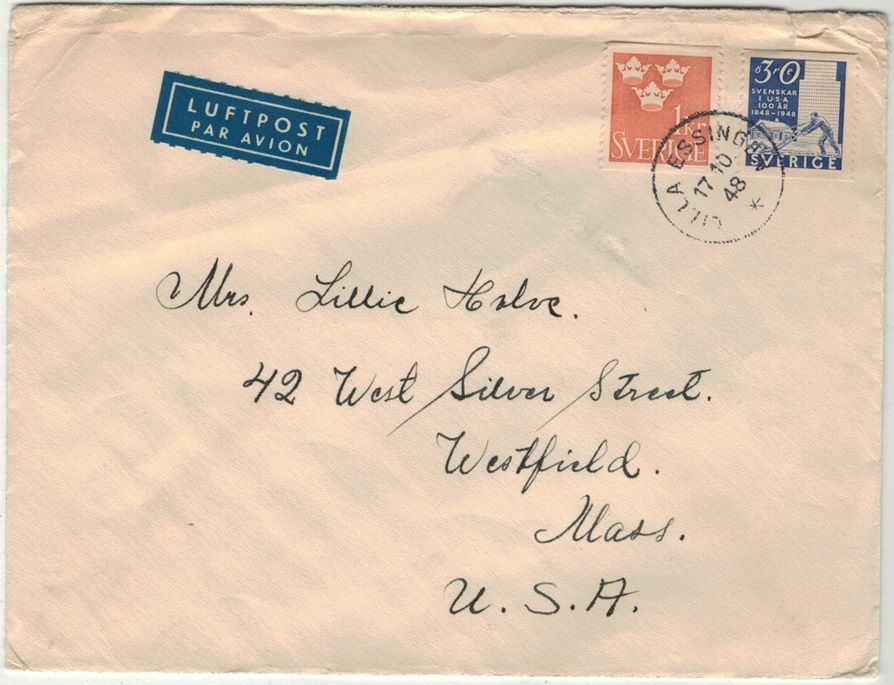 LUFTPOST
PAR AVION
1 kr
SVERIGE
30
öre
SVENSKAR
I U·S·A
100 ÅR
1848-1948
SVERIGE
LILLA ESSINGEN
17 10
48
Mrs. Lillie
42 West Silver Street.
Westfield.
Mass.
U. S. A.